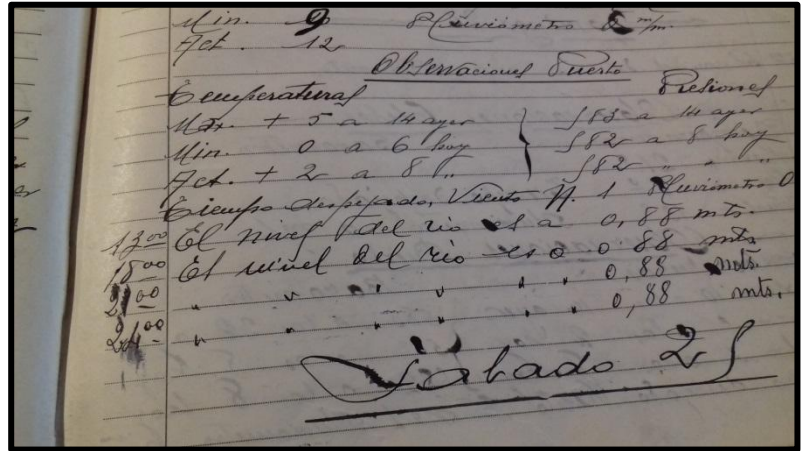 Min. 9 Pluviómetro 0 m/m.
Act. 12
Observaciones Puerto
Temperaturas Presiones
Máx. + 5 a 14 ayer 583 a 14 ayer
Min. 0 a 6 hoy 582 a 8 hoy
Act. + 2 a 8 " 582 " " "
Tiempo despejado, Viento N. 1 Pluviómetro 0
13 00 El nivel del rio es a 0,88 mts.
18 00 El nivel del rio es a 0.88 mts
21 00 " " " " " " 0,88 mts.
24 00 " " " " " " 0,88 mts.
Sábado 25